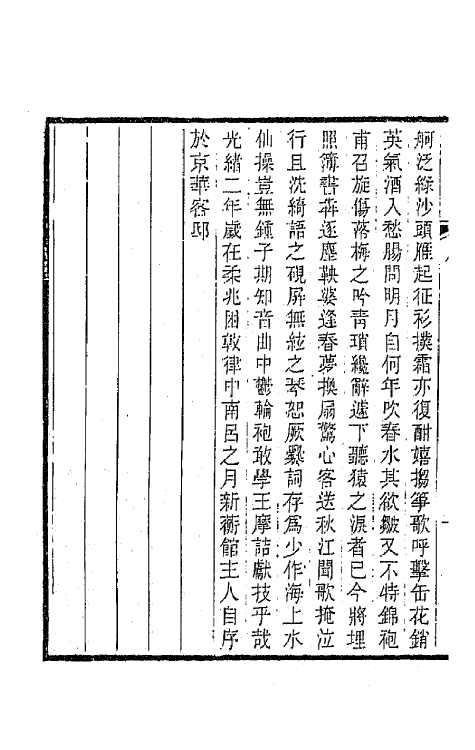 舸泛綠沙頭雁起征衫撲霜亦復酣嬉搊箏歌呼擊缶花銷
英氣酒入愁腸問明月自何年吹春水其欲皺又不特錦袍
甫召旋傷落梅之吟靑瑣纔辭遽下聽猿之淚者已今將埋
照簿書犇逐塵鞅婆逢春夢換扇驚心客送秋江聞歌掩泣
行且洗綺語之硯屏無絃之琴恕厥爨詞存爲少作海上水
仙操豈無鍾子期知音曲中鬱輪袍敢學王摩詰獻技乎哉
光緒二年歲在柔兆困敦律中南呂之月新蘅館主人自序
於京華客邸